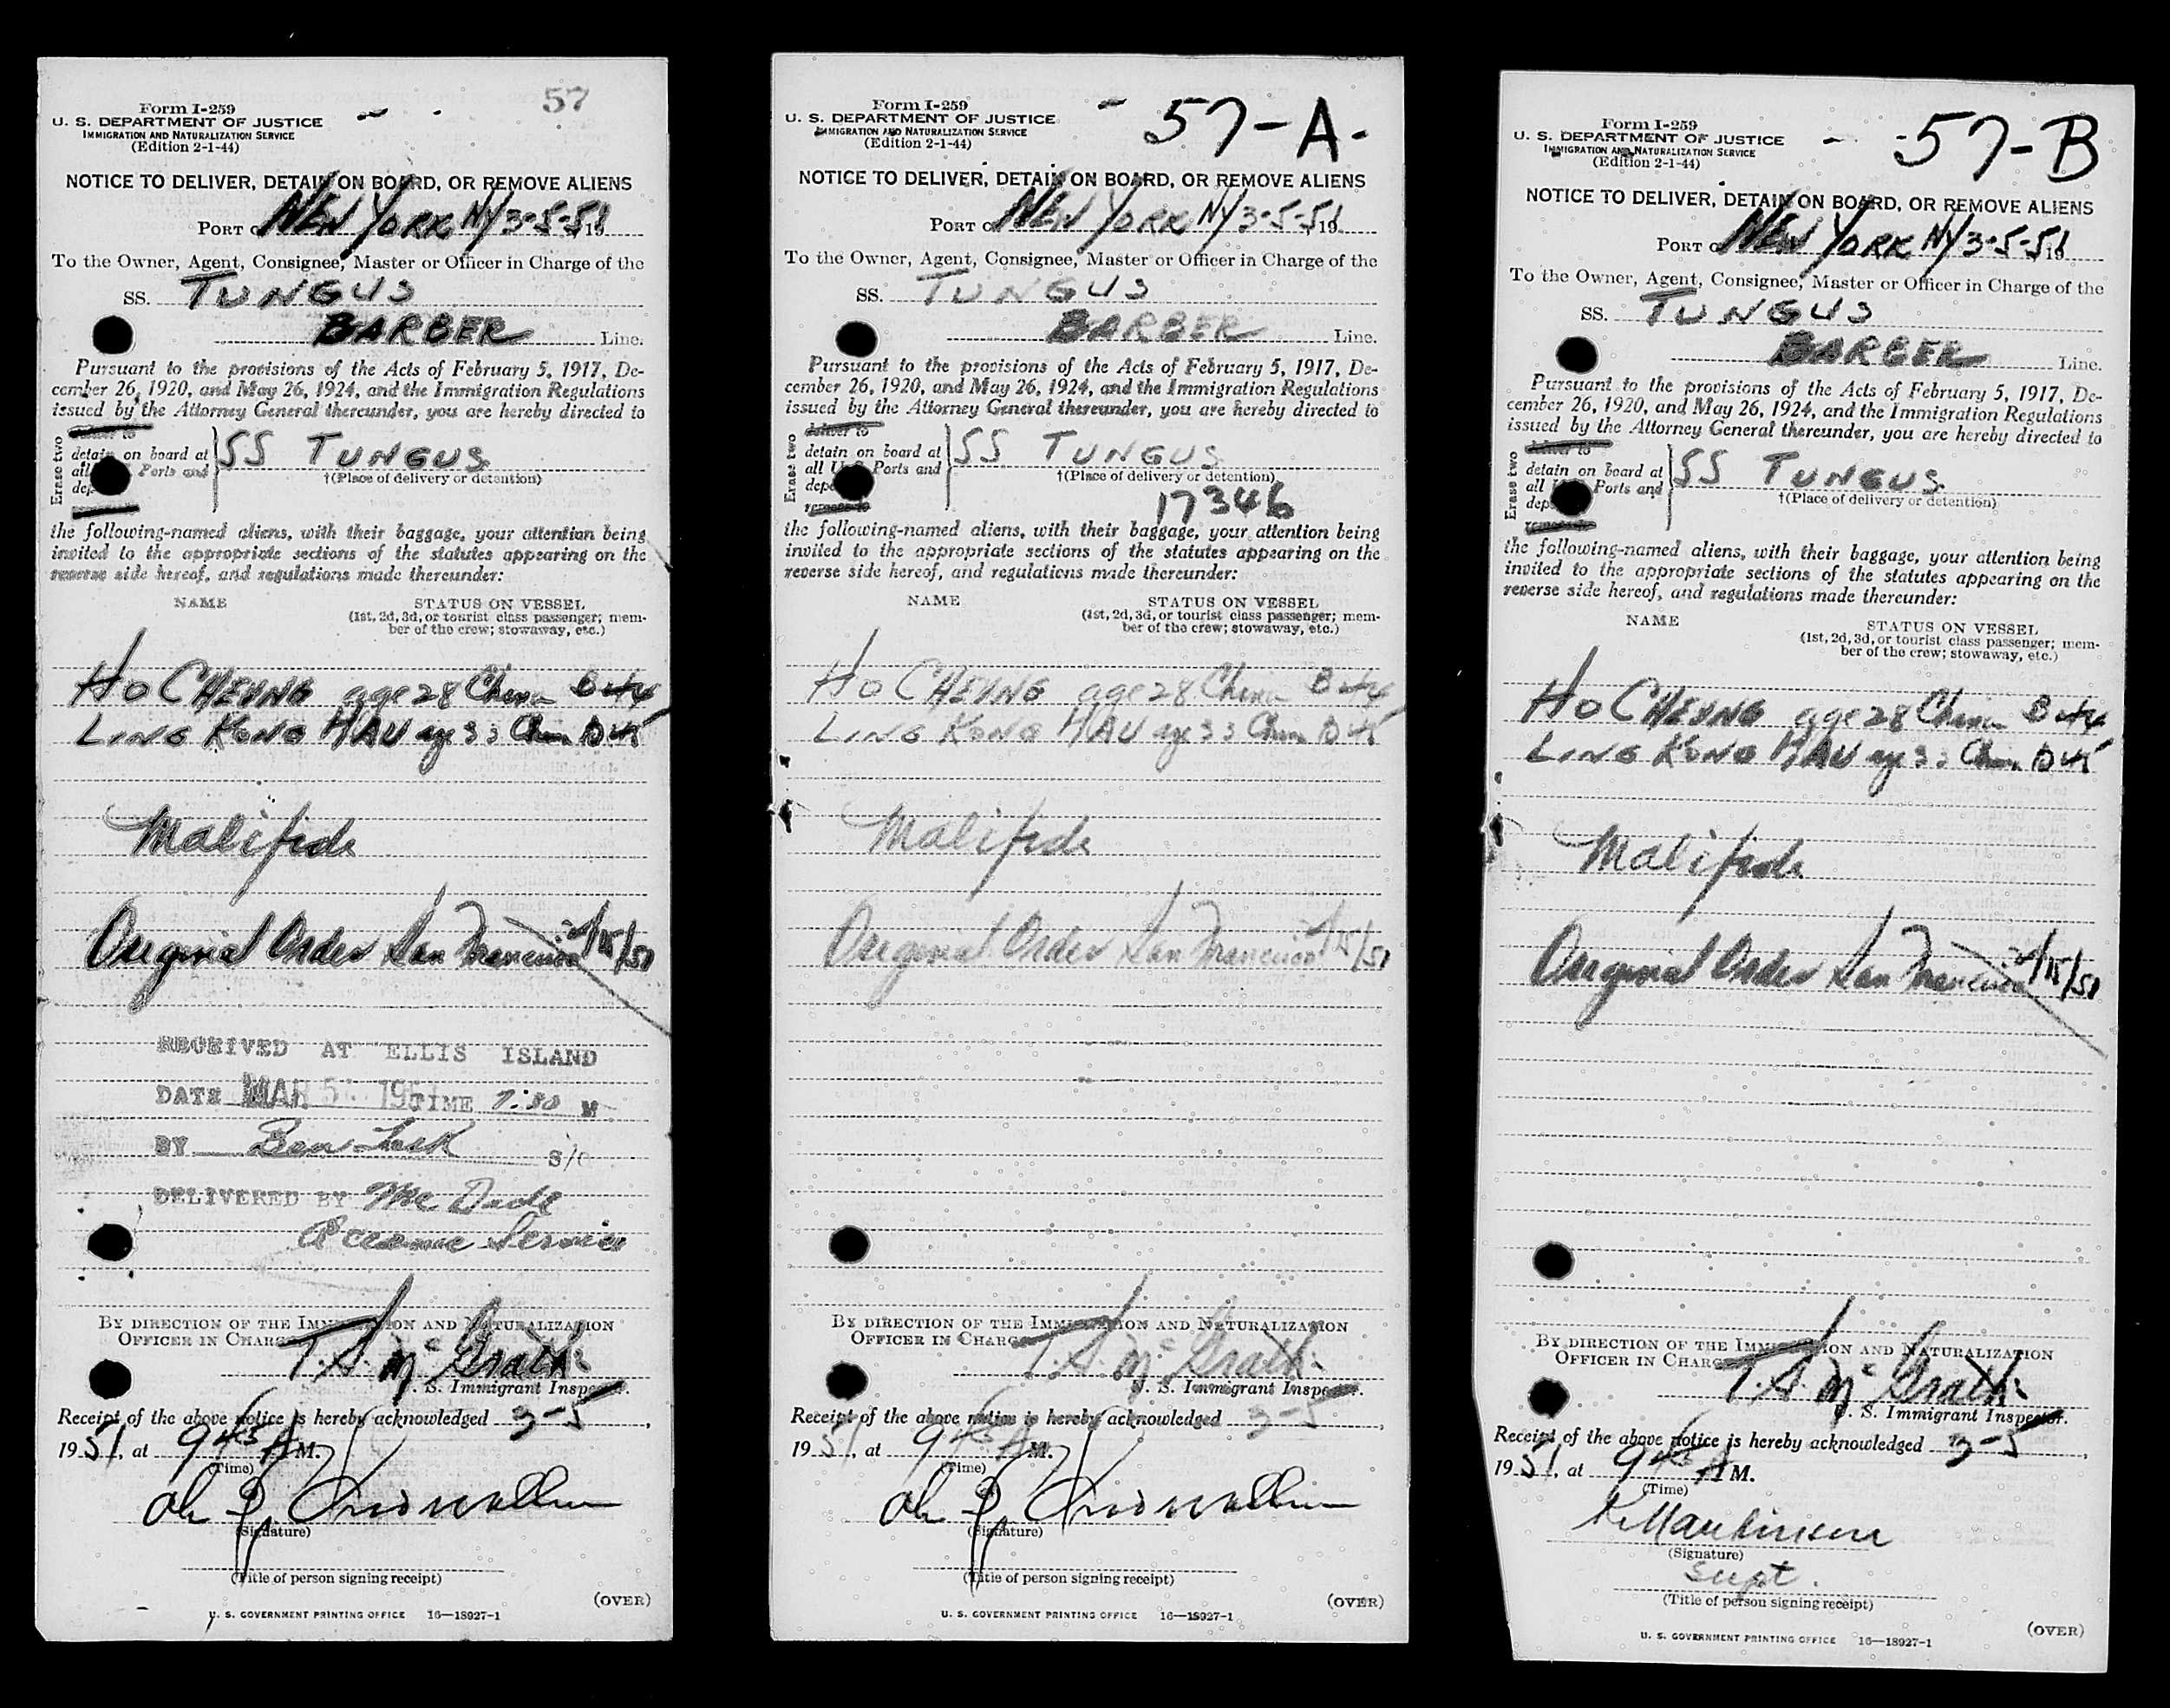 57
Form I-259
U. S. DEPARTMENT OF JUSTICE
IMMIGRATION AND NATURALIZATION SERVICE
(Edition 2-1-44)
NOTICE TO DELIVER, DETAIN ON BOARD, OR REMOVE ALIENS
PORT NEW YORK NY 3-5-51 19
To the Owner, Agent, Consignee, Master or Officer in Charge of the
SS. TUNGUS
BARBER Line.
Pursuant to the provisions of the Acts of February 5, 1917, De-
cember 26, 1920, and May 26, 1924, and the Immigration Regulations
issued by the Attorney General thereunder, you are hereby directed to
Erase two
detain on board at SS TUNGUS
all Ports and
†(Place of delivery or detention)
the following-named aliens, with their baggage, your attention being
invited to the appropriate sections of the statutes appearing on the
reverse side hereof, and regulations made thereunder:
NAME STATUS ON VESSEL
(1st, 2d, 3d, or tourist class passenger; mem-
ber of the crew; stowaway, etc.)
HO CHEUNG age 28 China
LING KONG HAU age 33 China
Malifide
Original Order San Francisco 2/15/51
RECEIVED AT ELLIS ISLAND
DATE MAR 5 1951 TIME 7:30 M
BY Ben Lusk S/O
DELIVERED BY Mc Dade
Service
BY DIRECTION OF THE IMMIGRATION AND NATURALIZATION
OFFICER IN CHARGE
T. S. McGrath
U. S. Immigrant Inspector.
Receipt of the above notice is hereby acknowledged 3-5,
1951, at 9 45 A M.
(Time)
(Signature)
(Title of person signing receipt)
(OVER)
U. S. GOVERNMENT PRINTING OFFICE 16—18927-1
57-A-
Form I-259
U. S. DEPARTMENT OF JUSTICE
IMMIGRATION AND NATURALIZATION SERVICE
(Edition 2-1-44)
NOTICE TO DELIVER, DETAIN ON BOARD, OR REMOVE ALIENS
PORT NEW YORK NY 3-5-51 19
To the Owner, Agent, Consignee, Master or Officer in Charge of the
SS. TUNGUS
BARBER Line.
Pursuant to the provisions of the Acts of February 5, 1917, De-
cember 26, 1920, and May 26, 1924, and the Immigration Regulations
issued by the Attorney General thereunder, you are hereby directed to
Erase two
deliver to
detain on board at SS TUNGUS
all U. S. Ports and
†(Place of delivery or detention)
remove to 17346
the following-named aliens, with their baggage, your attention being
invited to the appropriate sections of the statutes appearing on the
reverse side hereof, and regulations made thereunder:
NAME STATUS ON VESSEL
(1st, 2d, 3d, or tourist class passenger; mem-
ber of the crew; stowaway, etc.)
HO CHEUNG age 28 China
LING KONG HAU age 33 China
Malifide
Original Order San Francisco 2/15/51
BY DIRECTION OF THE IMMIGRATION AND NATURALIZATION
OFFICER IN CHARGE
T. S. McGrath
U. S. Immigrant Inspector.
Receipt of the above notice is hereby acknowledged 3-5,
1951, at 9 45 A M.
(Time)
(Signature)
(Title of person signing receipt)
(OVER)
U. S. GOVERNMENT PRINTING OFFICE 16—18927-1
57-B
Form I-259
U. S. DEPARTMENT OF JUSTICE
IMMIGRATION AND NATURALIZATION SERVICE
(Edition 2-1-44)
NOTICE TO DELIVER, DETAIN ON BOARD, OR REMOVE ALIENS
PORT NEW YORK NY 3-5-51 19
To the Owner, Agent, Consignee, Master or Officer in Charge of the
SS. TUNGUS
BARBER Line.
Pursuant to the provisions of the Acts of February 5, 1917, De-
cember 26, 1920, and May 26, 1924, and the Immigration Regulations
issued by the Attorney General thereunder, you are hereby directed to
Erase two
deliver to
detain on board at SS TUNGUS
all Ports and
†(Place of delivery or detention)
remove to
the following-named aliens, with their baggage, your attention being
invited to the appropriate sections of the statutes appearing on the
reverse side hereof, and regulations made thereunder:
NAME STATUS ON VESSEL
(1st, 2d, 3d, or tourist class passenger; mem-
ber of the crew; stowaway, etc.)
HO CHEUNG age 28 China
LING KONG HAU age 33 China
Malifide
Original Order San Francisco 2/15/51
BY DIRECTION OF THE IMMIGRATION AND NATURALIZATION
OFFICER IN CHARGE
T. S. McGrath
U. S. Immigrant Inspector.
Receipt of the above notice is hereby acknowledged 3-5,
1951, at 9 45 A M.
(Time)
(Signature)
Supt.
(Title of person signing receipt)
(OVER)
U. S. GOVERNMENT PRINTING OFFICE 16—18927-1